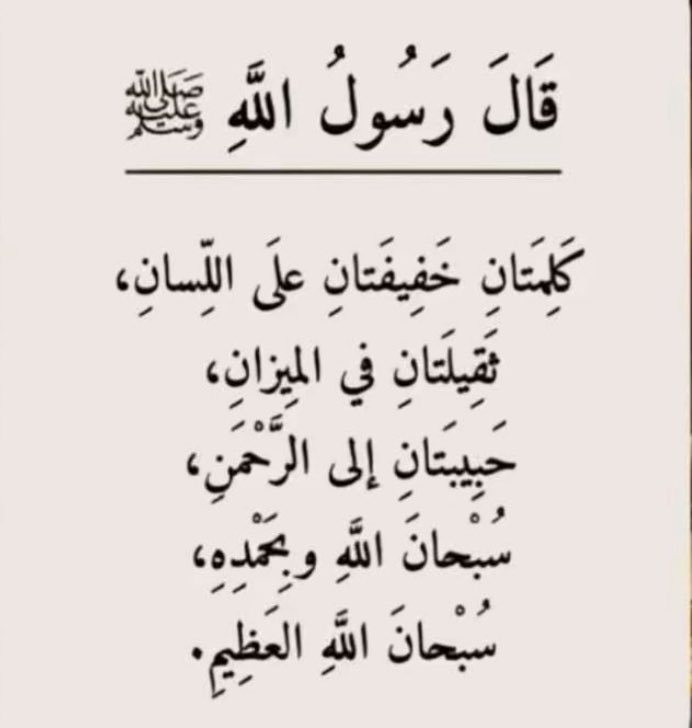 قَالَ رَسُولُ اللَّهِ ﷺ
كَلِمَتانِ خَفِيفَتانِ علَى اللِّسانِ،
ثَقِيلَتانِ في المِيزانِ،
حَبِيبَتانِ إلى الرَّحْمَنِ،
سُبْحانَ اللَّهِ وبِحَمْدِهِ،
سُبْحانَ اللَّهِ العَظِيمِ.